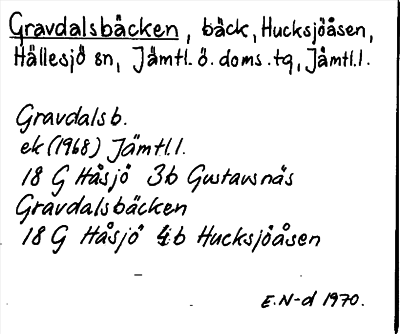 Gravdalsbäcken, bäck, Hucksjöåsen,
Hällesjö sn, Jämtl. ö. doms. tg, Jämtl. l.
Gravdalsb.
ek (1968) Jämtl. l.
18 G Håsjö 3b Gustavsnäs
Gravdalsbäcken
18 G Håsjö 4b Hucksjöåsen
E.N-d 1970.